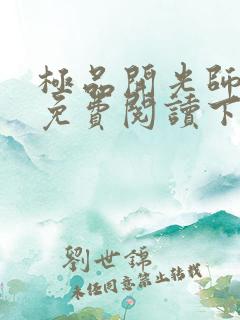 極品開光師
免費閱讀下
劉世錦
未經同意禁止轉載